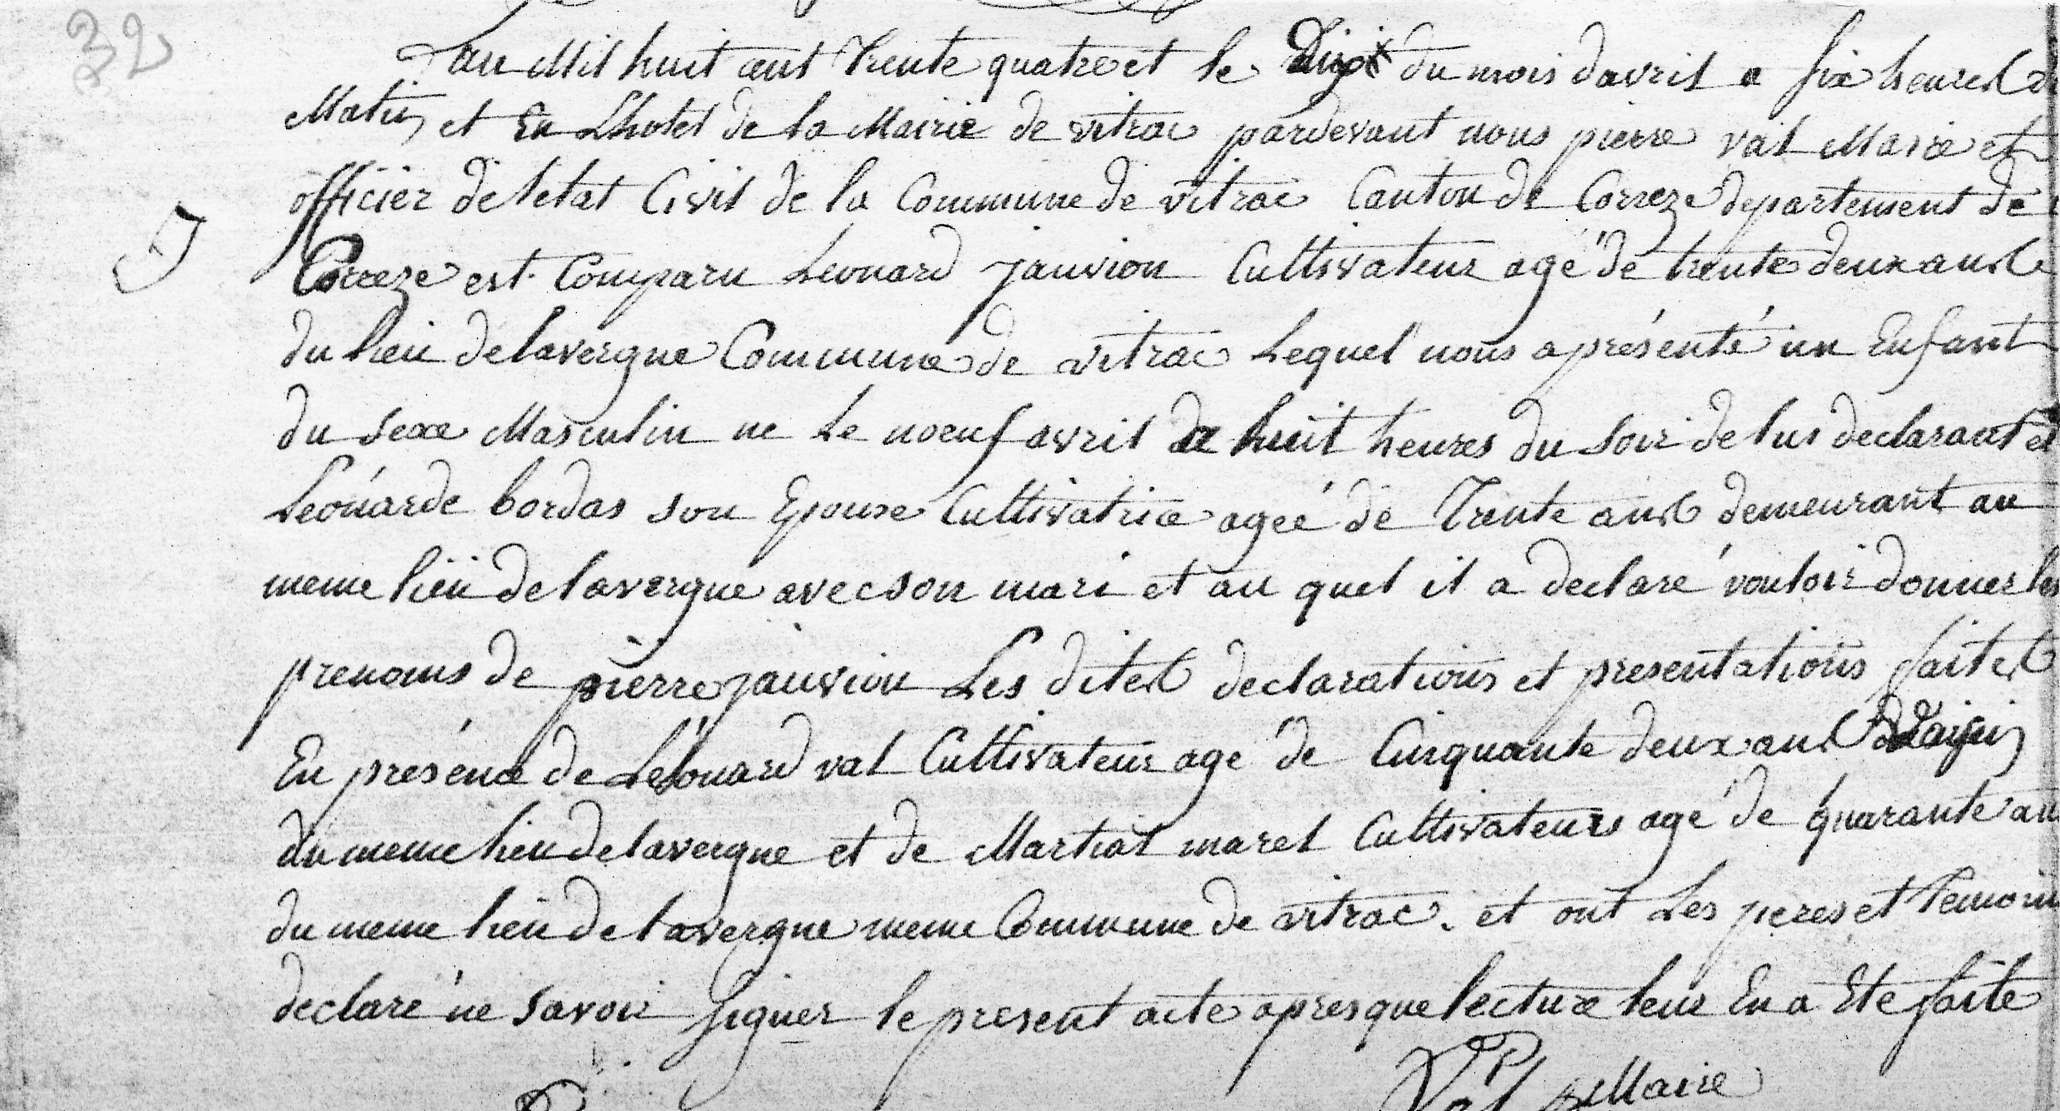 32
Lan Mil huit cent trente quatre et le Dix du mois davril a six heures du
Matin et En Lhotel de la Mairie de vitrac pardevant nous pierre val Maire et
officier de letat Civil de la Commune de vitrac Canton de Correze departement de
Correze est Comparu Leonard janvion Cultivateur agé de trente deux ans
du lieu de lavergne Commune de vitrac Lequel nous a présenté un Enfant
du sexe Masculin ne Le noeuf avril a huit heures du soir de lui declarant et
Leonarde bordas son Epouse Cultivatrice ageé de Trente ans demeurant au
meme lieu de lavergne avec son mari et au quel il a declaré vouloir donner les
prenoms de pierre janvion Les dites declarations et presentations faites
En présence de Léonard val Cultivateur agé de Cinquante deux ans
du meme lieu de lavergne et de Martial maret Cultivateurs agé de quarante ans
du meme lieu de lavergne meme Commune de vitrac. et ont Les peres et temoins
declaré ne savoir signer le present acte apres que lecture leur En a Eté faite
Val Maire